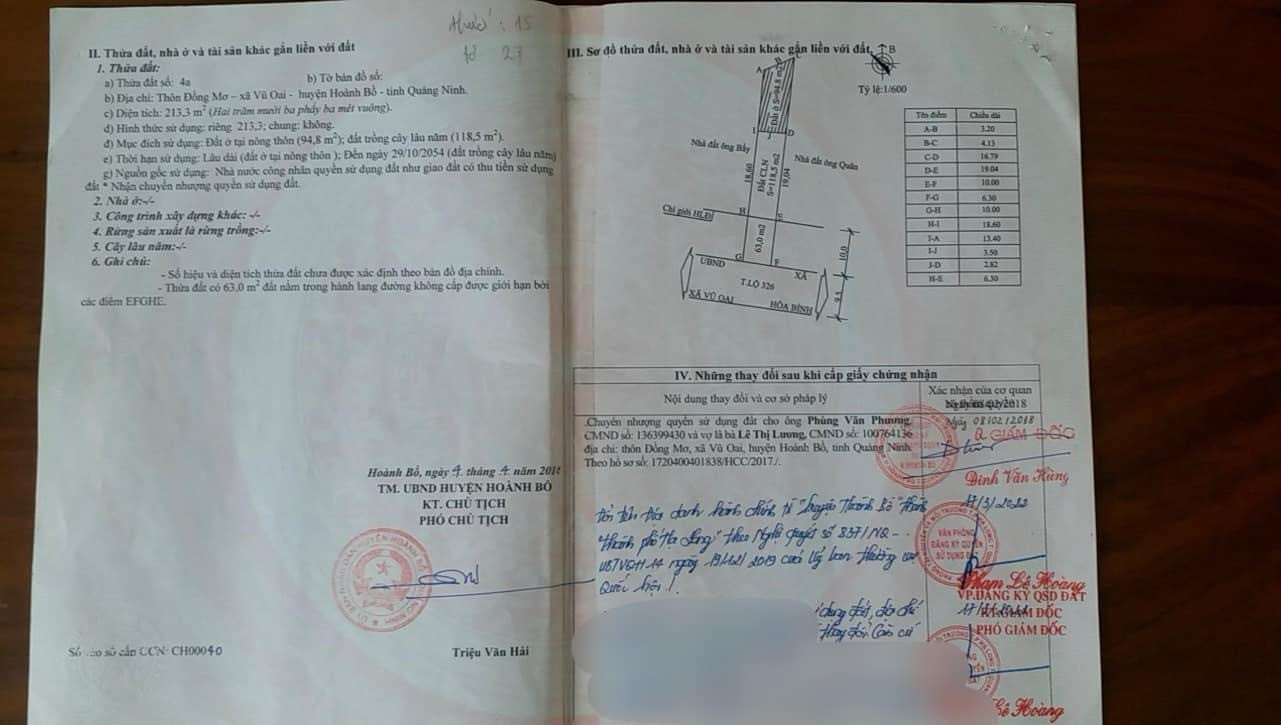 thửa : 15
tờ 27
II. Thửa đất, nhà ở và tài sản khác gắn liền với đất
1. Thửa đất:
a) Thửa đất số: 4a b) Tờ bản đồ số:
b) Địa chỉ: Thôn Đồng Mơ – xã Vũ Oai - huyện Hoành Bồ - tỉnh Quảng Ninh.
c) Diện tích: 213,3 m² (Hai trăm mười ba phẩy ba mét vuông).
d) Hình thức sử dụng: riêng 213,3; chung: không.
đ) Mục đích sử dụng: Đất ở tại nông thôn (94,8 m²); đất trồng cây lâu năm (118,5 m²).
e) Thời hạn sử dụng: Lâu dài (đất ở tại nông thôn ); Đến ngày 29/10/2054 (đất trồng cây lâu năm)
g) Nguồn gốc sử dụng: Nhà nước công nhân quyền sử dụng đất như giao đất có thu tiền sử dụng
đất * Nhận chuyển nhượng quyền sử dụng đất.
2. Nhà ở:-/-
3. Công trình xây dựng khác: -/-
4. Rừng sản xuất là rừng trồng:-/-
5. Cây lâu năm:-/-
6. Ghi chú:
- Số hiệu và diện tích thửa đất chưa được xác định theo bản đồ địa chính.
- Thửa đất có 63,0 m² đất nằm trong hành lang đường không cấp được giới hạn bởi
các điểm EFGHE.
Hoành Bồ, ngày 4 tháng 4 năm 201
TM. UBND HUYỆN HOÀNH BỒ
KT. CHỦ TỊCH
PHÓ CHỦ TỊCH
Số vào sổ cấp GCN: CH00040
Triệu Văn Hải
III. Sơ đồ thửa đất, nhà ở và tài sản khác gắn liền với đất
B
Tỷ lệ:1/600
A B C
Đất ở S=94,8 m2
I J D
Nhà đất ông Bẩy
Nhà đất ông Quân
18,60
Đất CLN
S=118,5 m2
19,04
Chỉ giới HLĐ
H E
63,0 m2
10,0
G F
UBND XÃ
T.LỘ 326
XÃ VŨ OAI HÒA BÌNH
9,5
Tên điểm Chiều dài
A-B 3.20
B-C 4.13
C-D 16.79
D-E 19.04
E-F 10.00
F-G 6.30
G-H 10.00
H-I 18.60
I-A 13.40
I-J 3.50
J-D 2.82
H-E 6.30
IV. Những thay đổi sau khi cấp giấy chứng nhận
Nội dung thay đổi và cơ sở pháp lý
Xác nhận của cơ quan
Ngày 08/02/2018
.Chuyển nhượng quyền sử dụng đất cho ông Phùng Văn Phương,
CMND số: 136399430 và vợ là bà Lê Thị Lương, CMND số: 100764136
địa chỉ: thôn Đồng Mơ, xã Vũ Oai, huyện Hoành Bồ, tỉnh Quảng Ninh.
Theo hồ sơ số: 1720400401838/HCC/2017./.
GIÁM ĐỐC
Đinh Văn Hùng
17/3/2022
Đổi tên địa danh hành chính từ "huyện Hoành Bồ" thành
"thành phố Hạ Long" theo Nghị quyết số 837/NQ-
UBTVQH 14 ngày 17/12/2019 của Uỷ ban thường vụ
Quốc hội /.
VĂN PHÒNG
ĐĂNG KÝ QUYỀN
SỬ DỤNG ĐẤT
Phạm Lê Hoàng
VP.ĐĂNG KÝ QSD ĐẤT
KT.GIÁM ĐỐC
PHÓ GIÁM ĐỐC
dụng đất, địa chỉ
thay đổi Căn cứ
Lê Hoàng